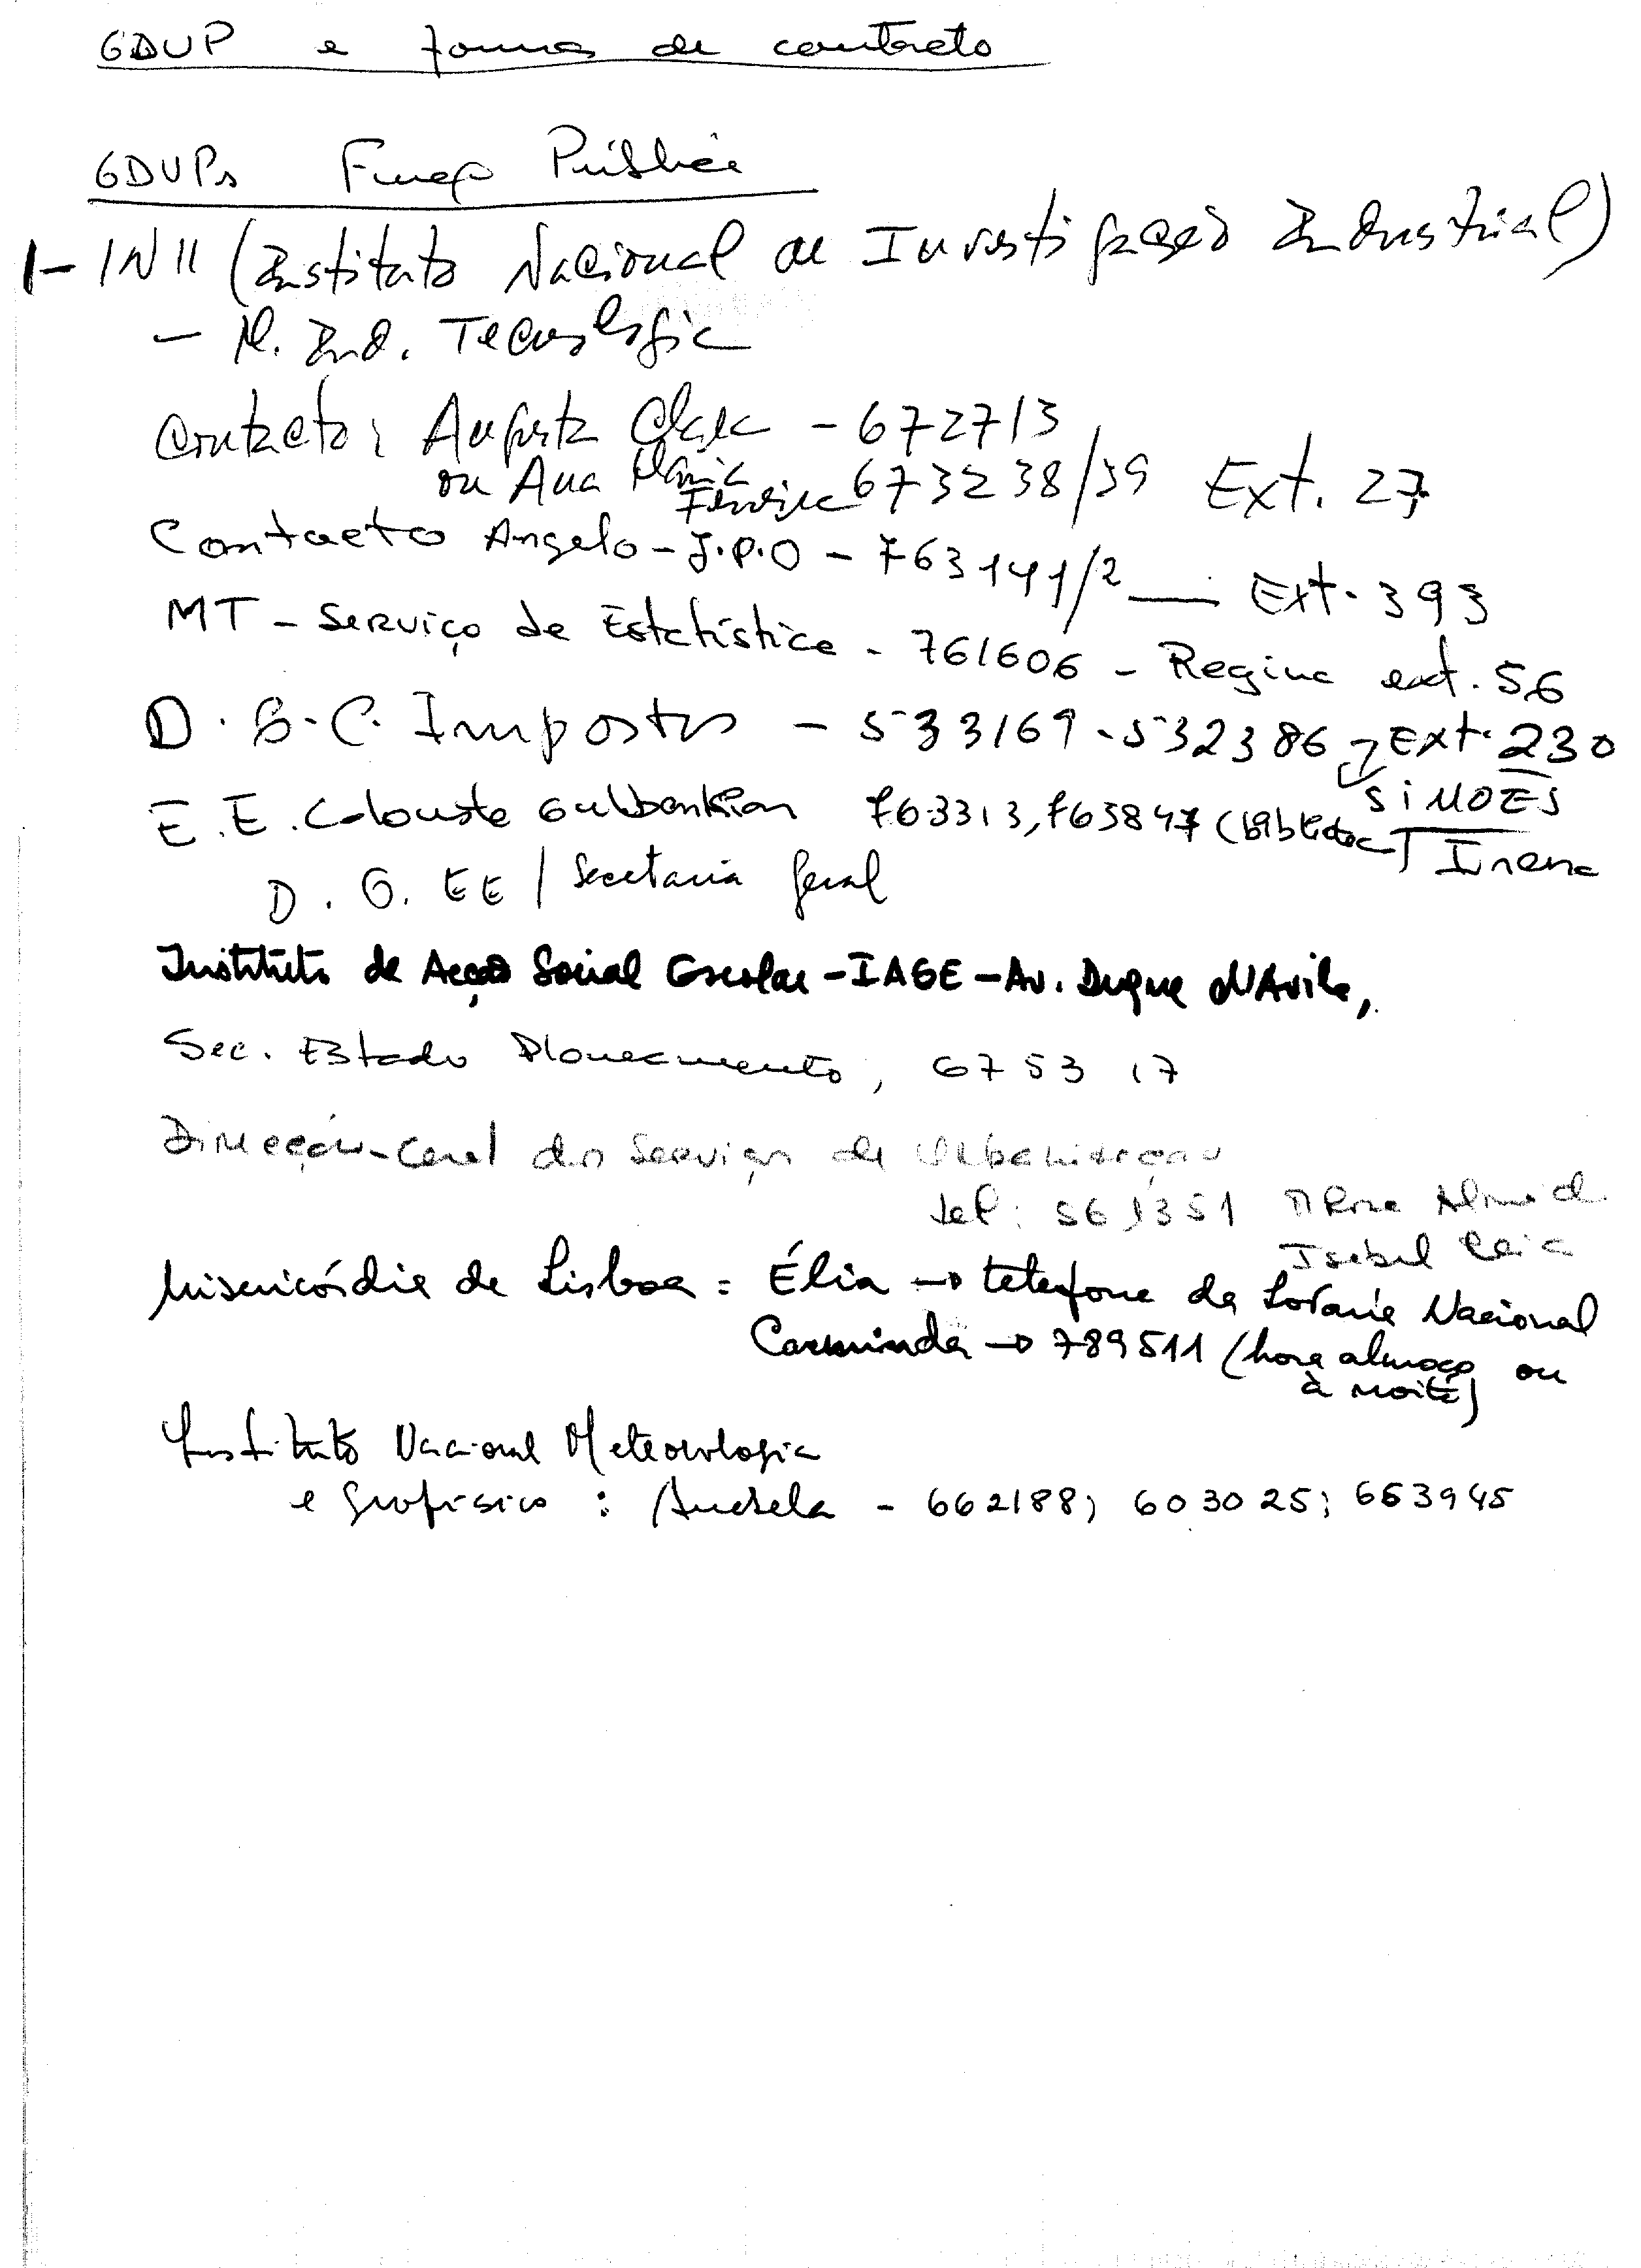 GDUP e formas de contacto
GDUPs Função Pública
1- INII (Instituto Nacional de Investigação Industrial)
- M. Ind. Tecnologia
Contacto: Augusta Clara - 672713
ou Ana Maria Ferreira 673238/39 Ext. 27
Contacto Angelo - J.P.O - 763141/2 — Ext. 393
MT - Serviço de Estatística - 761606 - Regina ext. 56
D.G.C. Impostos - 533169 - 532386 Ext. 230
SIMOES
E.E. Calouste Gulbenkian 763313, 763847 (biblioteca) Irene
D.G. EE / Secretaria Geral
Instituto de Acção Social Escolar - IASE - Av. Duque d'Avila,
Sec. Estado Planeamento, 67 53 17
Direcção-Geral dos Serviços de Urbanização
Tel: 561351 Mª Rosa Almeida
Isabel
Misericórdia de Lisboa = Élia → telefone da Lotaria Nacional
Carminda → 789511 (hora almoço ou
à noite)
Instituto Nacional Meteorologia
e Geofísica : - 662188; 603025; 663945